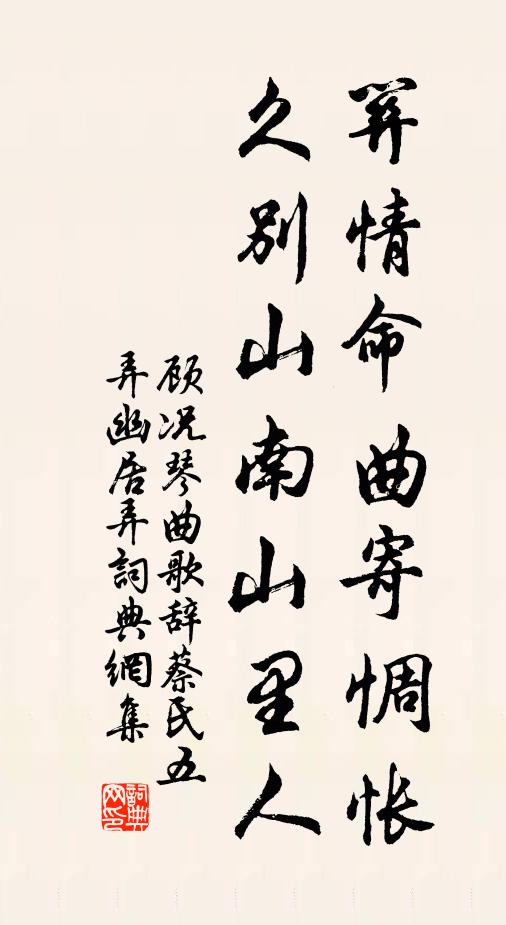 关情命曲寄惆怅
久别山南山里人
顾况琴曲歌辞蔡民五
弄幽居弄詞典網集
詞典网印